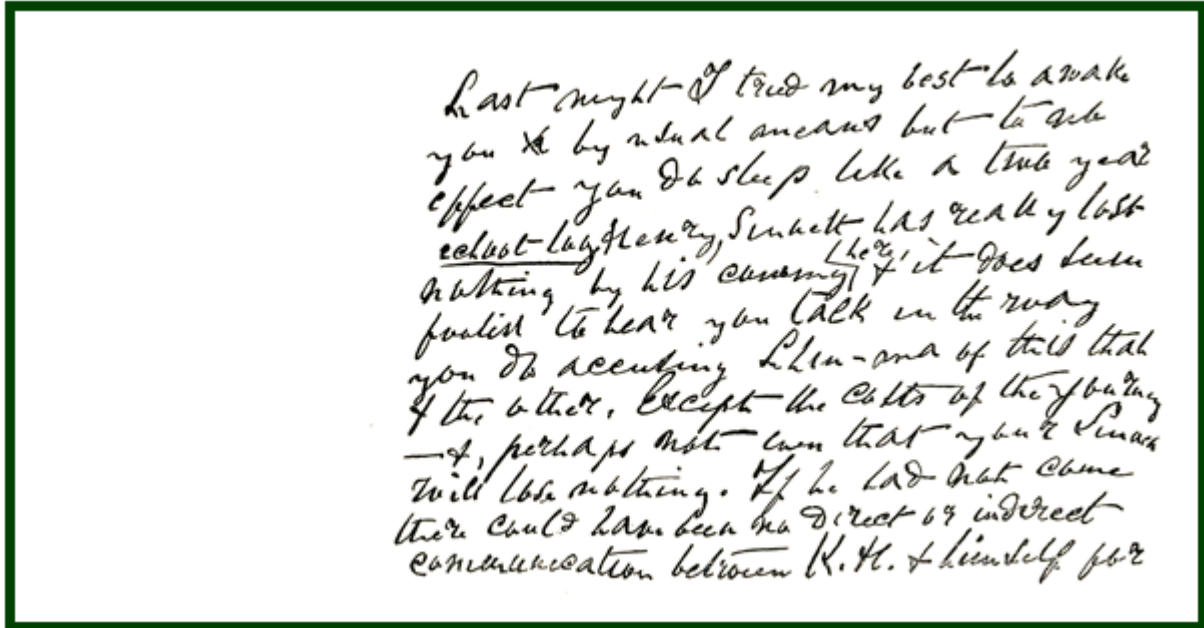 Last night I tried my best to awake
you by usual means but to no
effect you do sleep like a two year
school-boy Henry, Sinnett has really lost
nothing by his coming here, & it does seem
foolish to hear you talk in the way
you do accusing of this that
& the other. Except the costs of the journey
— &, perhaps not even that your Sinnett
will lose nothing. If he had not come
there could have been no direct or indirect
communication between K.H. & himself for